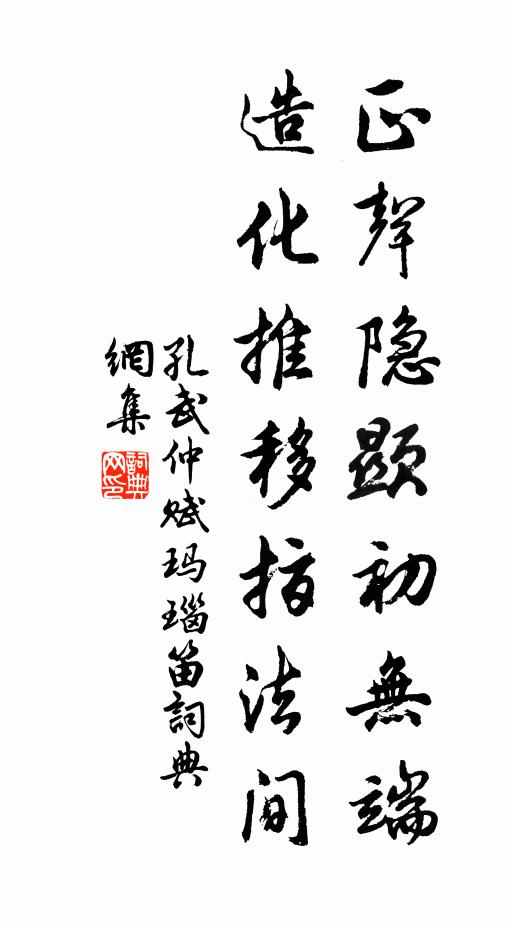 正聲隐顯初無端
造化推移指法间
孔武仲赋玛瑙笛詞典
網集
詞典
网印